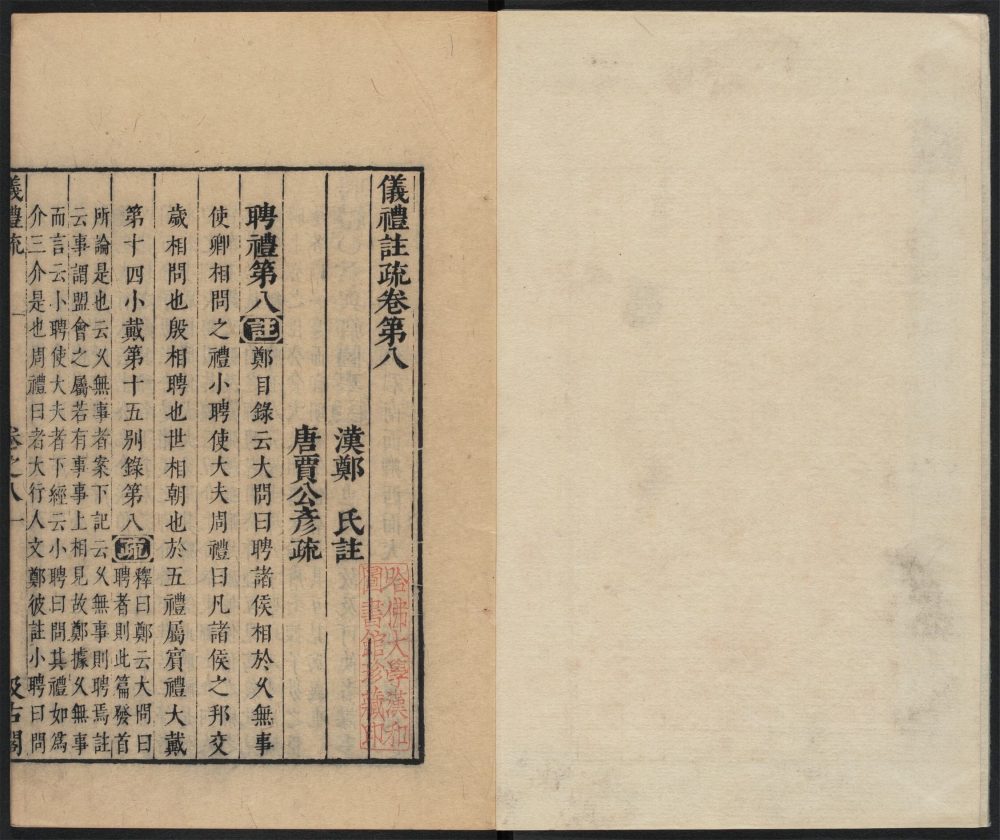 儀禮註疏卷第八
漢鄭 氏註
唐賈公彥疏
哈佛大學漢和
圖書館珍藏印
聘禮第八註鄭目錄云大問曰聘諸侯相於久無事
使卿相問之禮小聘使大夫周禮曰凡諸侯之邦交
歲相問也殷相聘也世相朝也於五禮屬賓禮大戴
第十四小戴第十五別錄第八疏釋曰鄭云大問曰
聘者則此篇發首
所論是也云久無事者案下記云久無事則聘焉註
云事謂盟會之屬若有事事上相見故鄭據久無事
而言云小聘使大夫者下經云小聘曰問其禮如爲
介三介是也周禮曰者大行人文鄭彼註小聘曰問
儀禮疏 卷之八 一 汲古閣